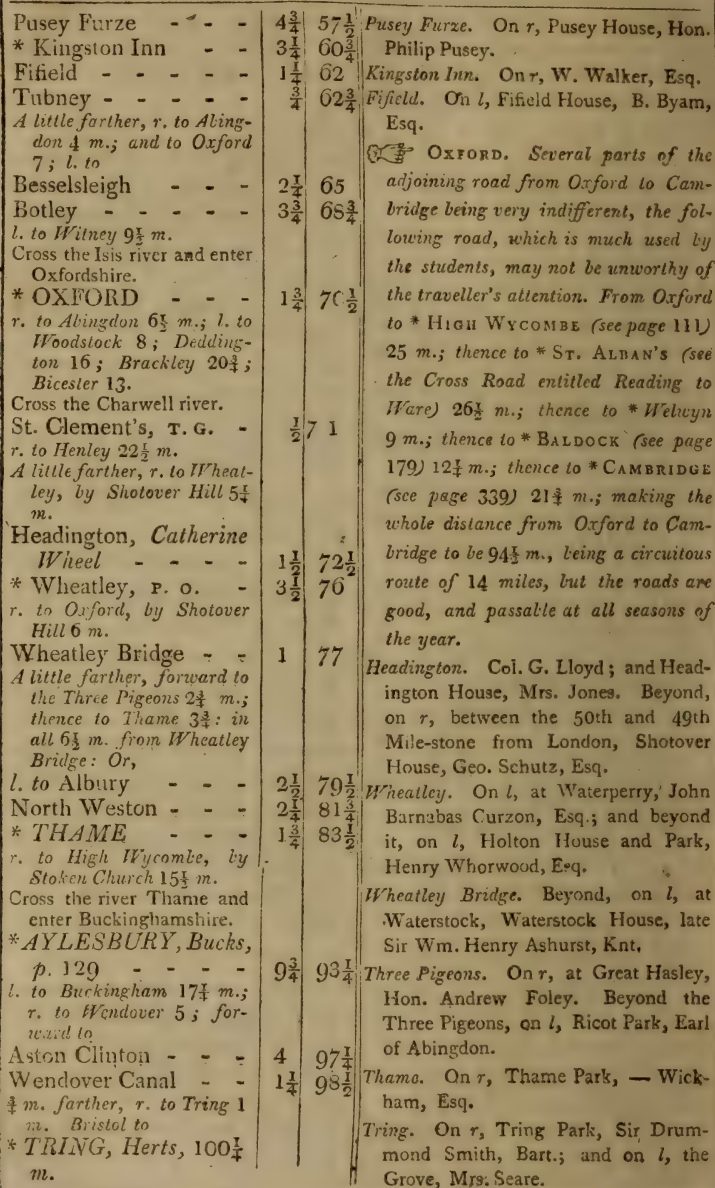 Pusey Furze - - - 4¾ 57½
* Kingston Inn - - 3¼ 60¾
Fifield - - - - - 1¼ 62
Tubney - - - - - ¾ 62¾
A little farther, r. to Abing-
don 4 m.; and to Oxford
7; l. to
Besselsleigh - - - 2¼ 65
Botley - - - - - 3¾ 68¾
l. to Witney 9½ m.
Cross the Isis river and enter
Oxfordshire.
* OXFORD - - - 1¾ 70½
r. to Abingdon 6½ m.; l. to
Woodstock 8; Dedding-
ton 16; Brackley 20¾;
Bicester 13.
Cross the Charwell river.
St. Clement's, T. G. - ½ 71
r. to Henley 22½ m.
A little farther, r. to Wheat-
ley, by Shotover Hill 5¼
m.
Headington, Catherine
Wheel - - - - 1½ 72½
* Wheatley, P. O. - 3½ 76
r. to Oxford, by Shotover
Hill 6 m.
Wheatley Bridge - - 1 77
A little farther, forward to
the Three Pigeons 2¾ m.;
thence to Thame 3¾: in
all 6½ m. from Wheatley
Bridge: Or,
l. to Albury - - - 2½ 79½
North Weston - - - 2¼ 81¾
* THAME - - - 1¾ 83½
r. to High Wycombe, by
Stoken Church 15½ m.
Cross the river Thame and
enter Buckinghamshire.
* AYLESBURY, Bucks,
p. 129 - - - - 9¾ 93¼
l. to Buckingham 17¼ m.;
r. to Wendover 5; for-
ward to
Aston Clinton - - - 4 97¼
Wendover Canal - - 1¼ 98½
¾ m. farther, r. to Tring 1
m. Bristol to
* TRING, Herts, 100¼
m.
Pusey Furze. On r, Pusey House, Hon.
Philip Pusey.
Kingston Inn. On r, W. Walker, Esq.
Fifield. On l, Fifield House, B. Byam,
Esq.
☞ OXFORD. Several parts of the
adjoining road from Oxford to Cam-
bridge being very indifferent, the fol-
lowing road, which is much used by
the students, may not be unworthy of
the traveller's attention. From Oxford
to * HIGH WYCOMBE (see page 111)
25 m.; thence to * ST. ALBAN's (see
the Cross Road entitled Reading to
Ware) 26½ m.; thence to * Welwyn
9 m.; thence to * BALDOCK (see page
179) 12¼ m.; thence to * CAMBRIDGE
(see page 339) 21¾ m.; making the
whole distance from Oxford to Cam-
bridge to be 94½ m., being a circuitous
route of 14 miles, but the roads are
good, and passable at all seasons of
the year.
Headington. Col. G. Lloyd; and Head-
ington House, Mrs. Jones. Beyond,
on r, between the 50th and 49th
Mile-stone from London, Shotover
House, Geo. Schutz, Esq.
Wheatley. On l, at Waterperry, John
Barnabas Curzon, Esq.; and beyond
it, on l, Holton House and Park,
Henry Whorwood, Esq.
Wheatley Bridge. Beyond, on l, at
Waterstock, Waterstock House, late
Sir Wm. Henry Ashurst, Knt.
Three Pigeons. On r, at Great Hasley,
Hon. Andrew Foley. Beyond the
Three Pigeons, on l, Ricot Park, Earl
of Abingdon.
Thame. On r, Thame Park, — Wick-
ham, Esq.
Tring. On r, Tring Park, Sir Drum-
mond Smith, Bart.; and on l, the
Grove, Mrs. Seare.